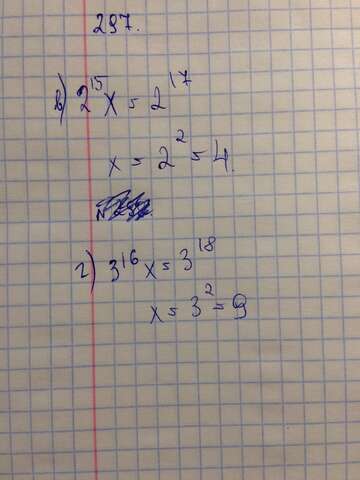 297.
в) 2¹⁵x = 2¹⁷
x = 2² = 4.
г) 3¹⁶x = 3¹⁸
x = 3² = 9